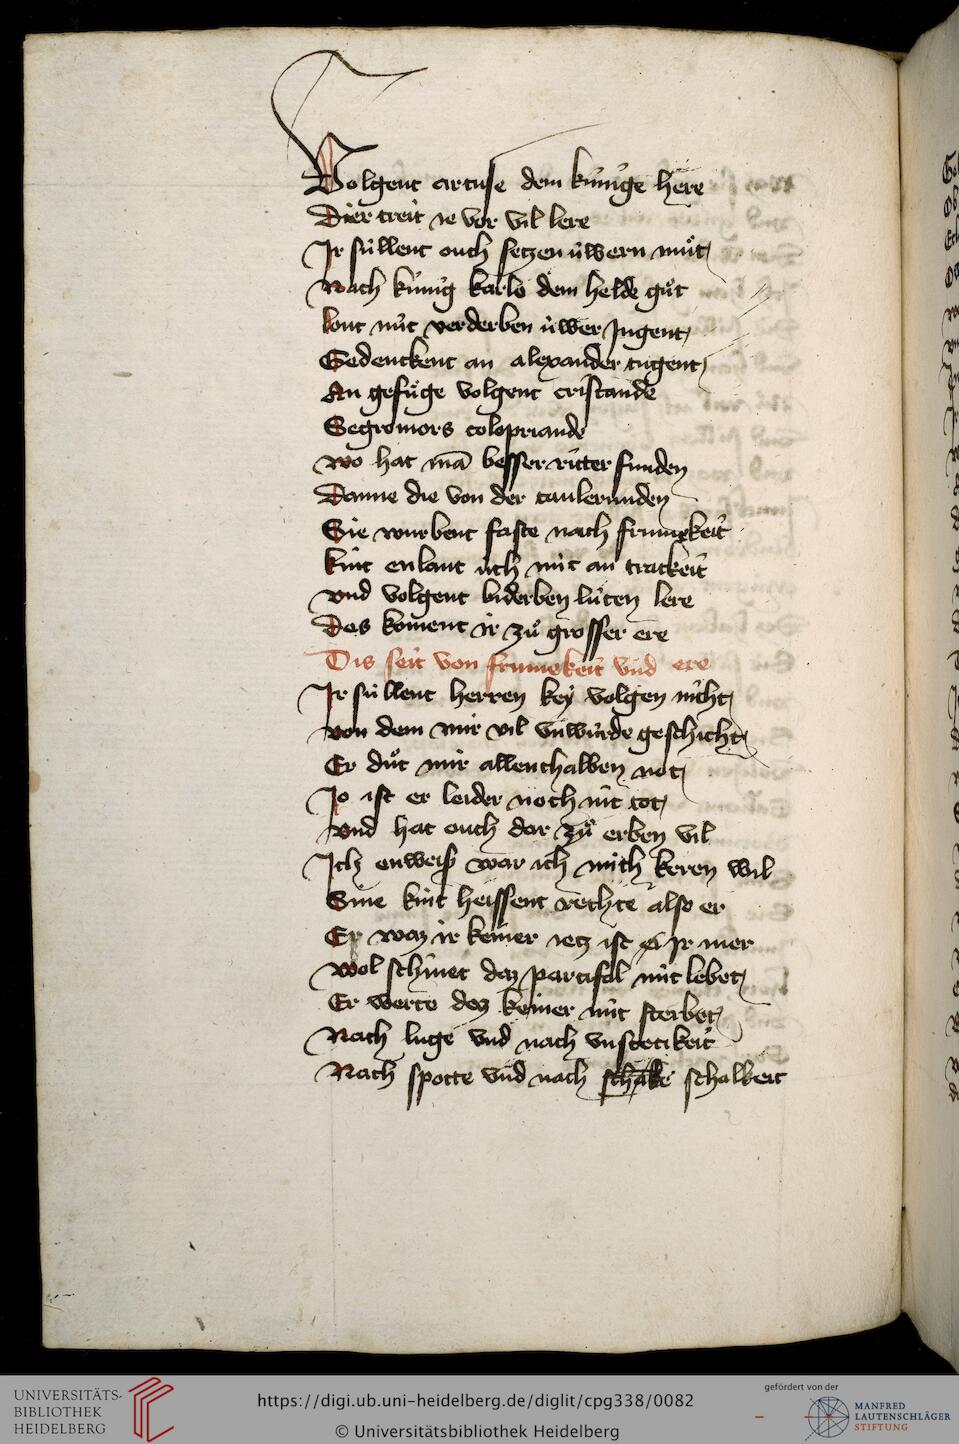 Volgent artuse dem kúnige here
Dier treit ie vor vil lere
Ir súllent ouch setzen úwern muͦt
Nach kúnig karlo dem helde guͦt
lont nút verderben úwer Jugent
Gedenckent an alexander tugent
An gefuͤge volgent tristande
Segremors colopriande
wo hat mā besser ritter funden
Danne die von der taulerunden
Sie wurbent faste nach frumekeit
kint enlant úch nút an trackeit
vnd volgent biderben lúten lere
Des koment ir zuͦ grosser ere
Dis seit von frumekeit vnd ere
Ir súllent herren key volgen nicht
von dem mir vil vnwúrde geschicht
Er duͦt mir allenthalben not
Jo ist er leider noch nút tot
vnd hat ouch dar zuͦ erben vil
Ich enweiß war ich mich keren wil
Sine kint heissent rechte also er
Er waz ir keiner ietz ist ir mer
wol schinet daz partifal nút lebet
Er werte daz keiner nút sterbet
Nach luge vnd nach vnstetikeit
Nach spotte vnd nach schalkeit
UNIVERSITÄTS-
BIBLIOTHEK
HEIDELBERG
https://digi.ub.uni-heidelberg.de/diglit/cpg338/0082
© Universitätsbibliothek Heidelberg
gefördert von der
MANFRED
LAUTENSCHLÄGER
STIFTUNG